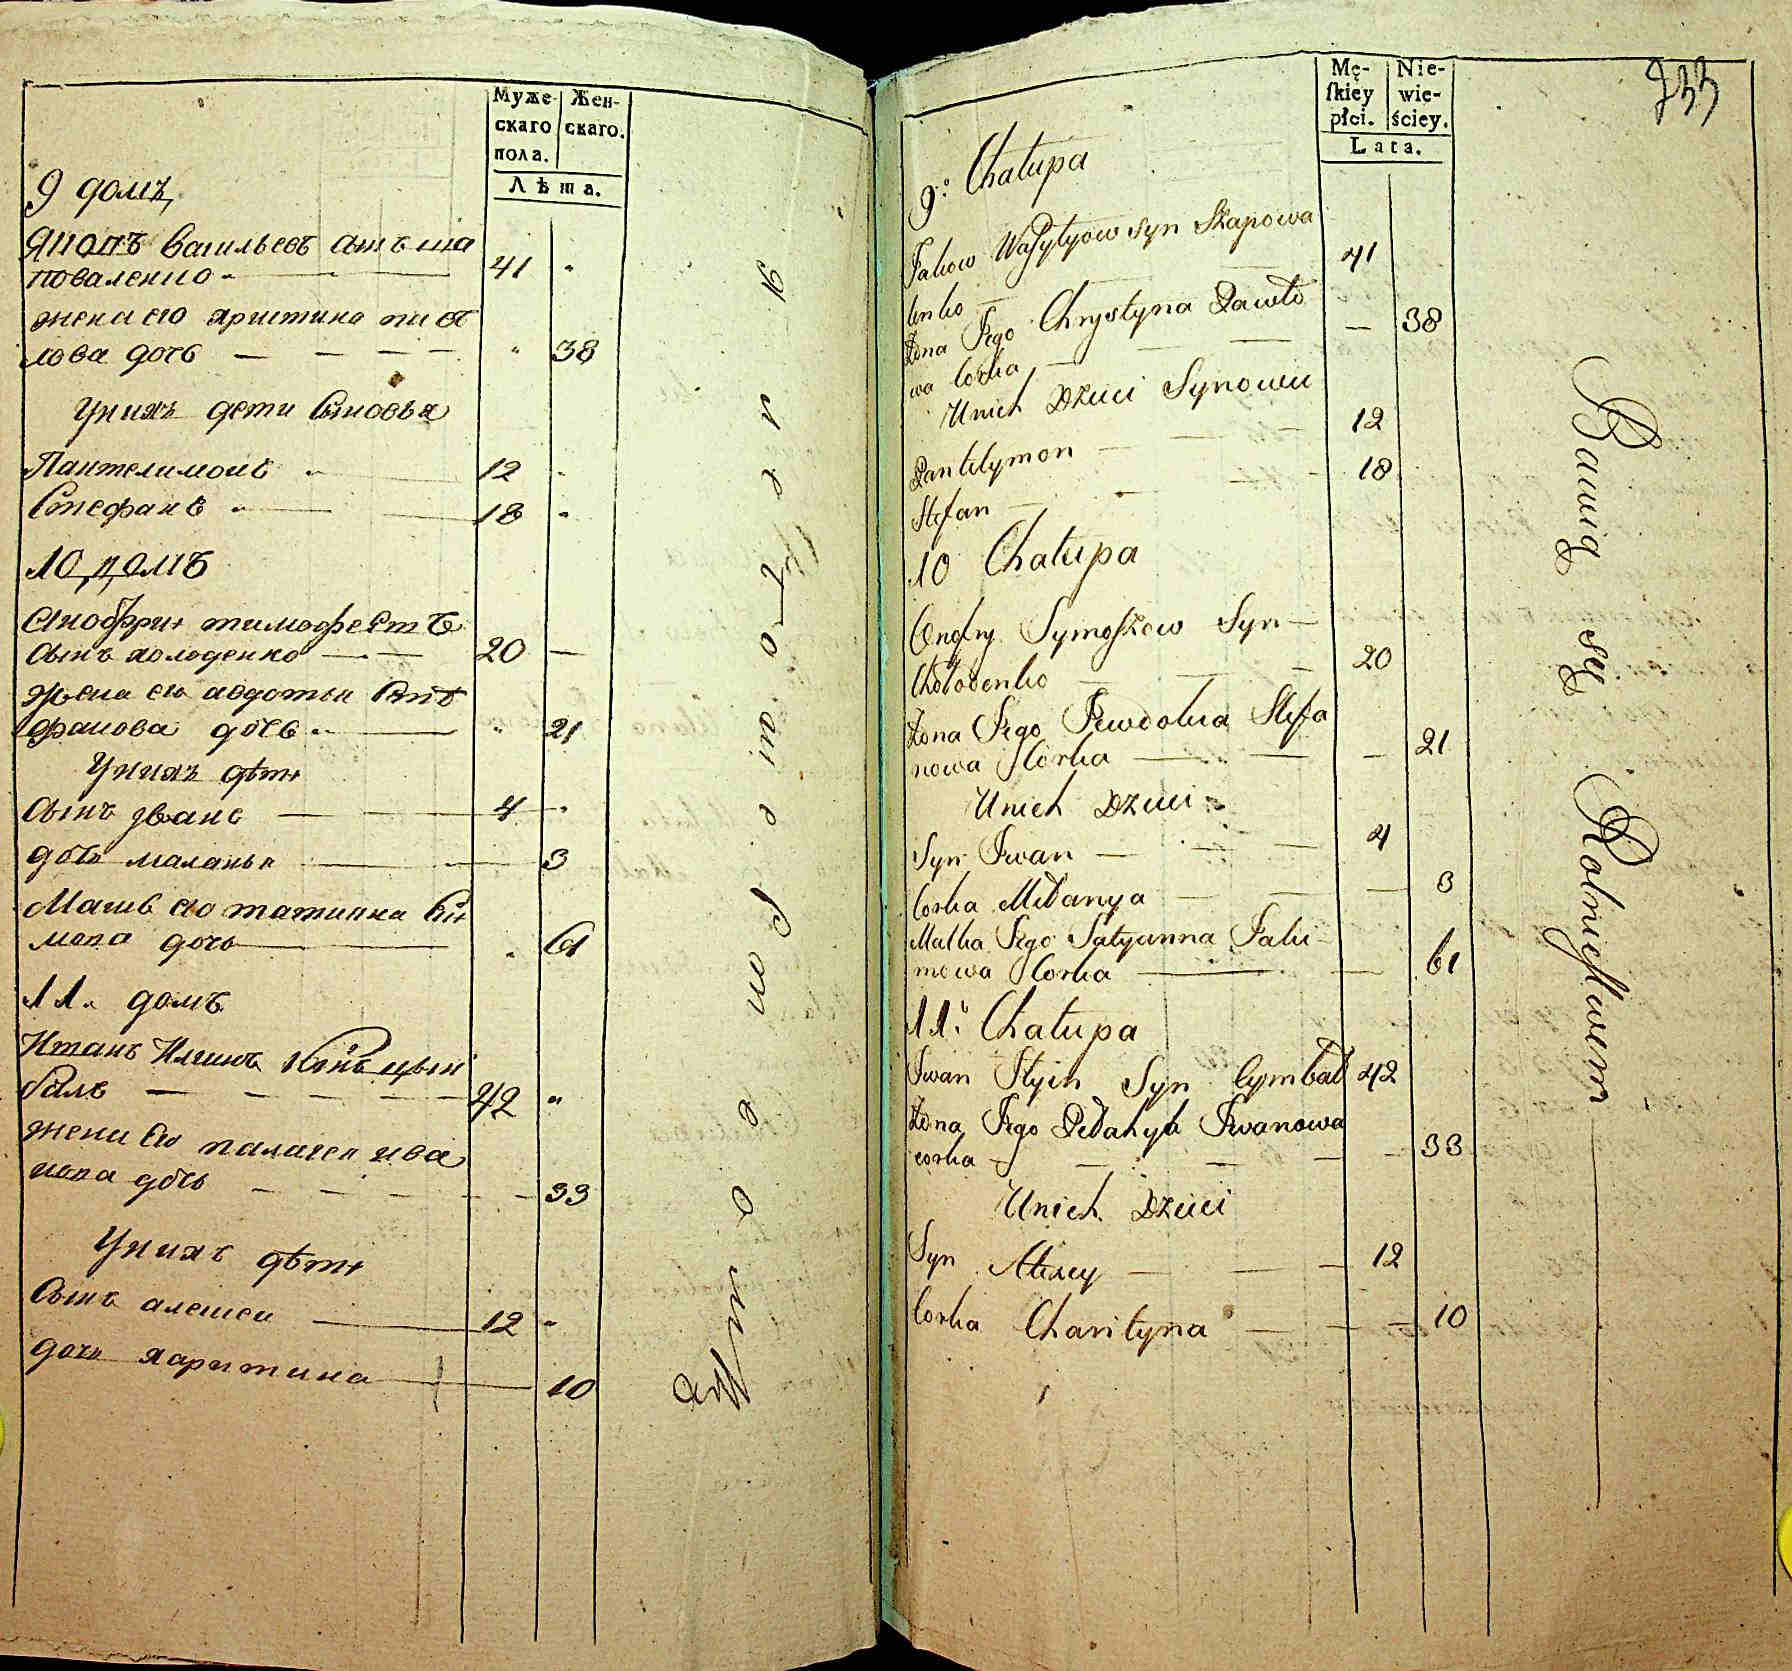 Муже-
скаго
пола.
Жен-
скаго.
Лѣта.
9 домъ
Яковъ Васильевъ сынъ ша
поваленко
жена его христина пав
лова дочь
38
41
Уних дети Сыновья
Пантелимонъ 12
Стефанъ 18
10 домъ
Онофри тимофеевъ
сынъ холоденко 20
жена его авдотья Сте
фанова дочь 21
Унихъ дѣти
Сынъ иванъ 4
дочь маланья 3
Мать его татияна
мова дочь 61
11. домъ
Иванъ Илиинъ Сынъ цым
балъ 42
жена его палагея ива
нова дочь 33
Унихъ дѣти
Сынъ алексеи 12
дочь харитина 10
233
Mę-
ſkiey
płci.
Nie-
wie-
ściey.
Lata.
9: Chałupa
Jakow Wasylyow syn Szapowa
lenko 41
Żona Jego Chrystyna Pawło
wa Corka 38
Unich Dzieci Synowie
Pantelymon 12
Stefan 18
10 Chałupa
Onofry Tymoszow Syn
Chołodenko 20
Żona Jego Jewdokia Stefa
nowa Corka 21
Unich Dzieci
Syn Iwan 4
Corka Mełanya 3
Matka Jego Tatyanna
mowa Corka 61
11: Chałupa
Iwan Ilyin Syn Cymbał 42
Żona Jego Pełahya Iwanowa
corka 33
Unich Dzieci
Syn Alexey 12
Corka Charityna 10
Bawią się Rolnictwem